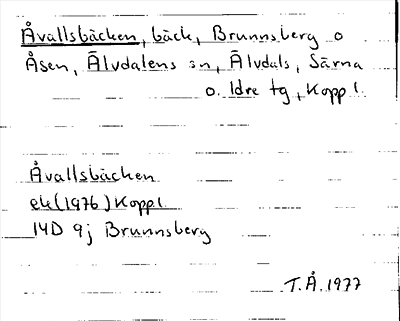 Åvallsbäcken, bäck, Brunnsberg o
Åsen, Älvdalens sn, Älvdals, Särna
o. Idre tg, Koppl.
Åvallsbäcken
ek(1976) Koppl.
14D 9j Brunnsberg
T.Å. 1977